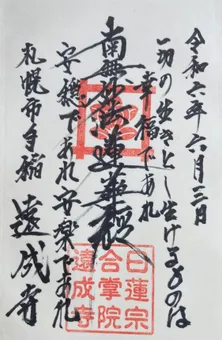 令和六年六月三日
一切の生きとし生けるものは
幸福であれ
南無妙法蓮華経
安穏であれ安楽であれ
札幌市手稲
遠成寺
日蓮宗
合掌院
遠成寺